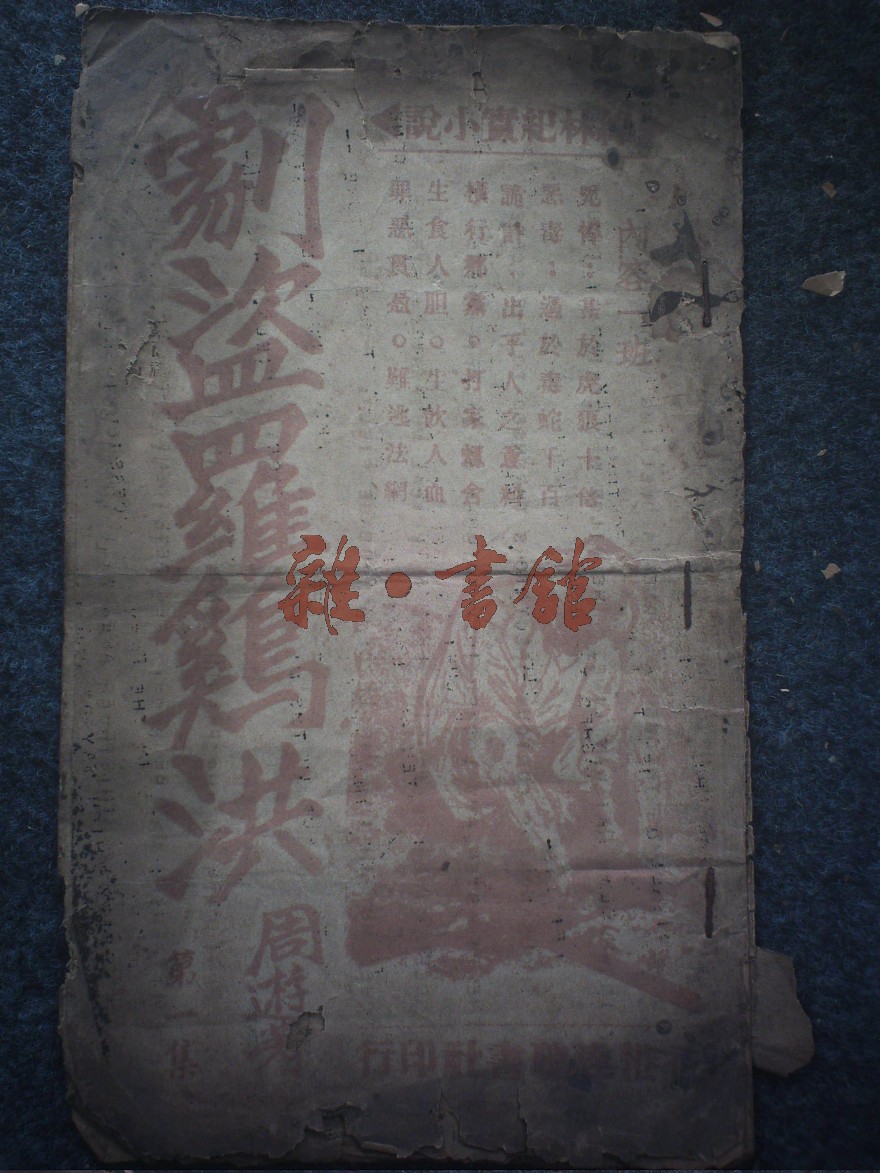 林紀實小說
內容一班
兇悍：甚於虎狼十倍
惡毒：過於毒蛇千百
詭計：出乎人之意料
橫行鄉黨。打家刼舍
生食人胆。生飲人血
罪惡貫盈。難逃法網
劇盜羅鷄洪
周遊著
第一集
書社印行
雜·書館